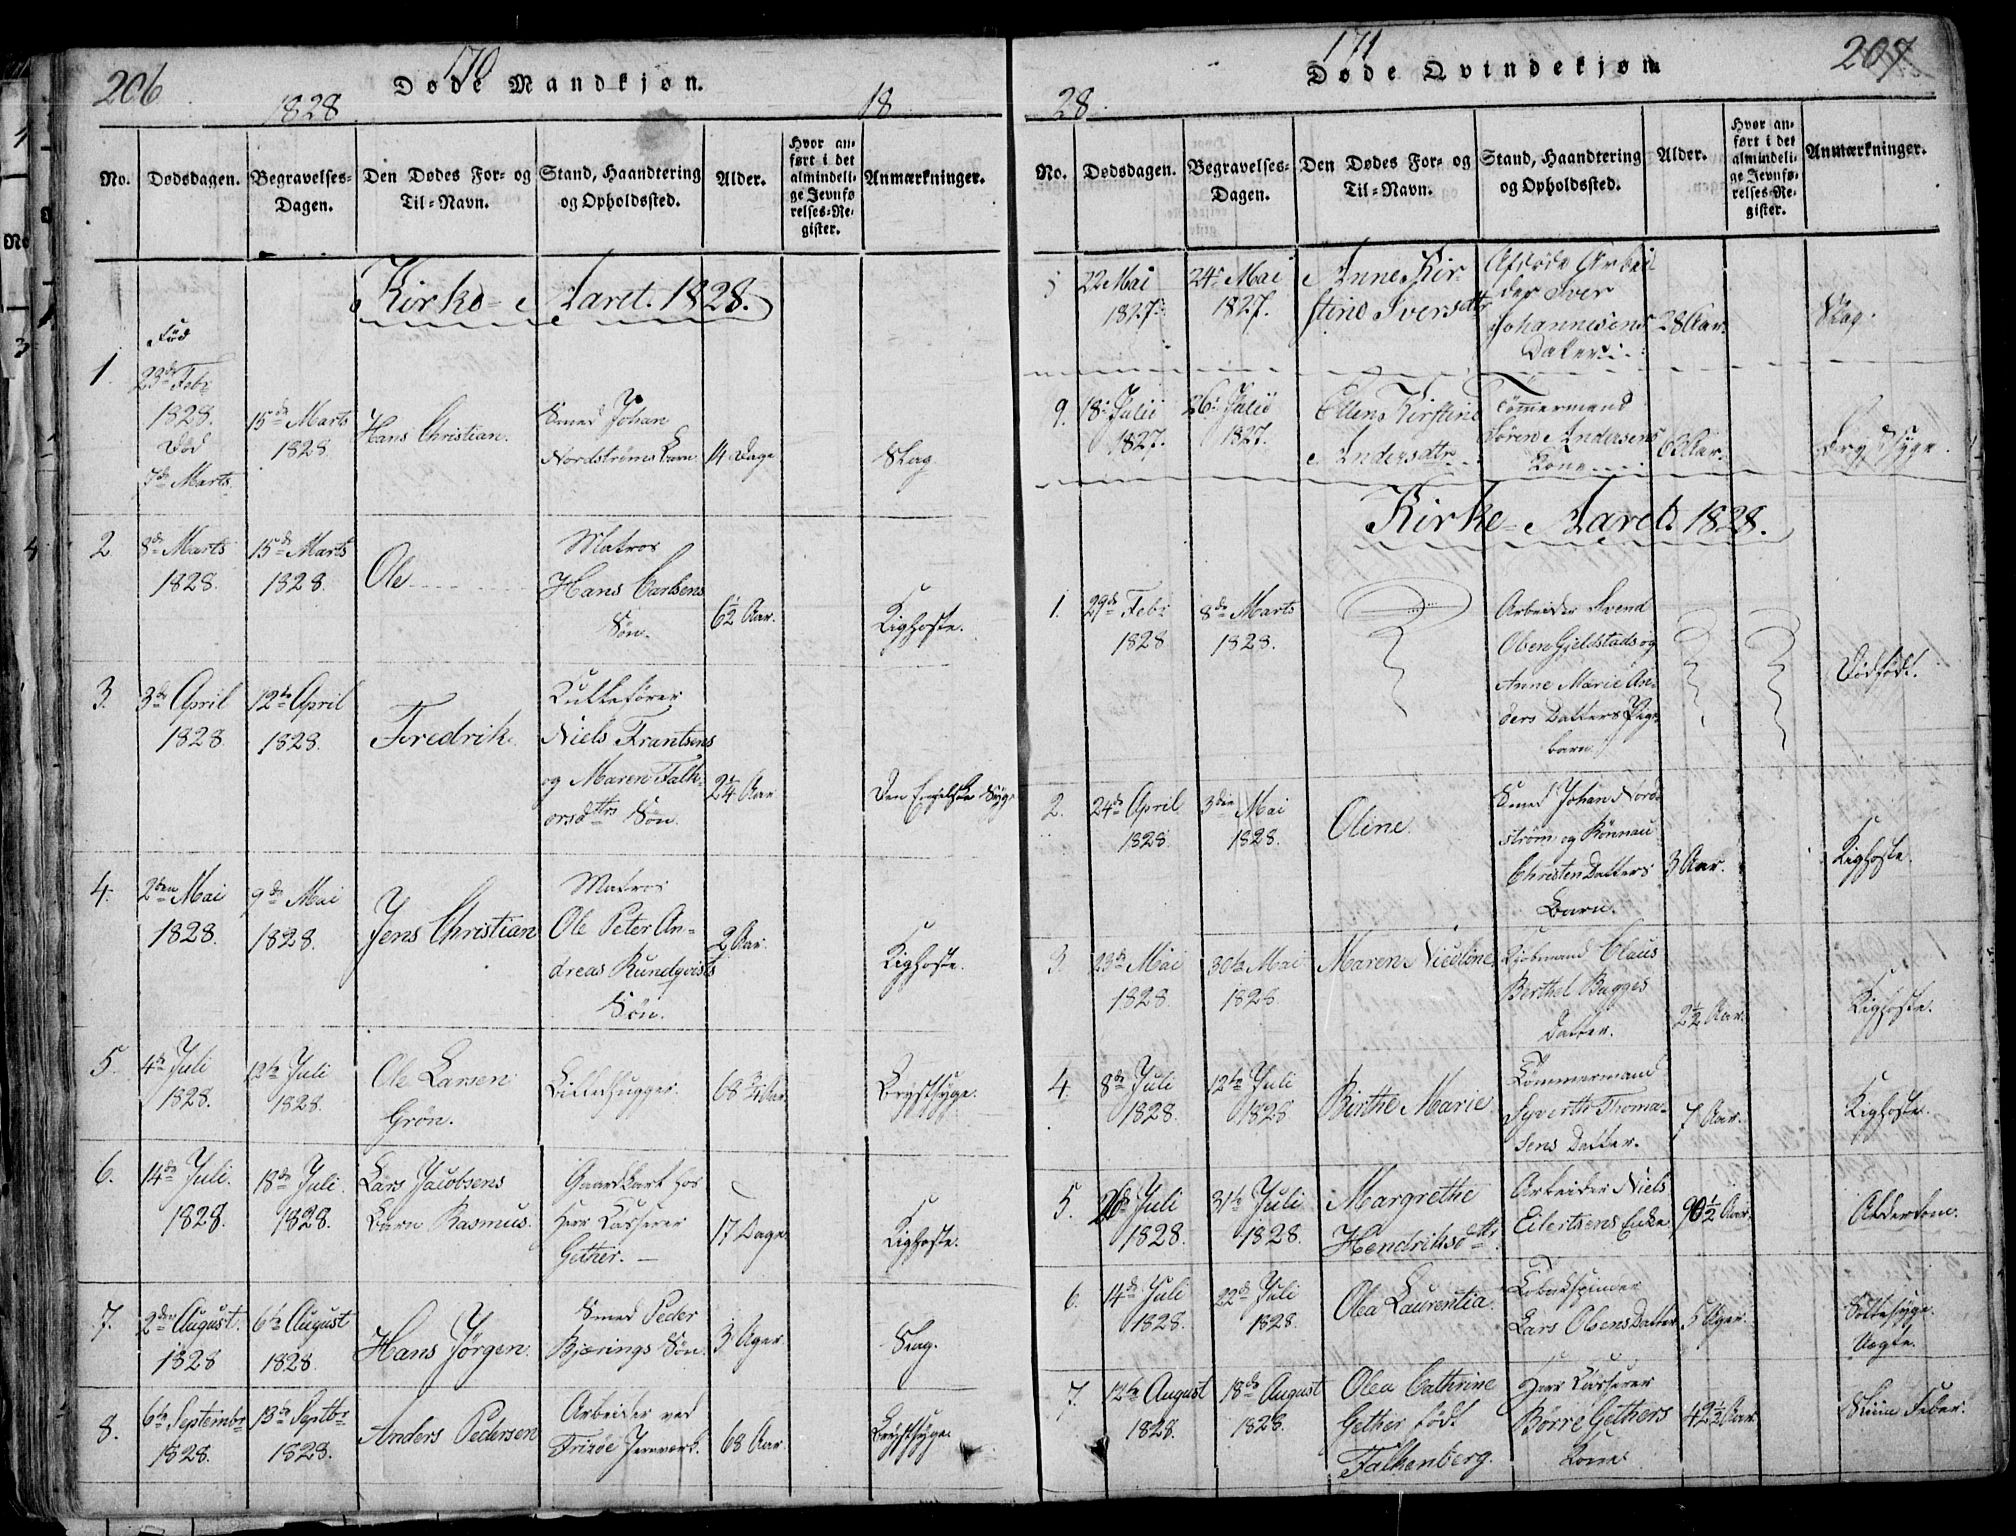 206
170
Døde Mandkjøn.
1828
18
No.
Dødsdagen.
Begravelses-
Dagen.
Den Dødes For- og
Til-Navn.
Stand, Haandtering
og Opholdssted.
Alder.
Hvor an-
ført i det
almindeli-
ge Jevnfø-
relses-Re-
gister.
Anmærkninger.
Kirke-Aaret 1828.
1.
Fød
23de Febr
1828.
Død
7de Marts
15de Marts
1828
Hans Christian.
Smed Johan
Nordstrøms Barn
14 Dage
Slag
2
8de Marts
1828.
15de Marts
1828.
Ole
Matros
Hans Carlsens
Søn.
6½ Aar.
Kighoste.
3.
3de April
1828
12te April
1828.
Fredrik.
Kullefører
Niels Frantsens
og Maren Falk-
orsdttrs Søn.
2¼ Aar
Den Engelske Syge
4.
2den Mai
1828.
9de Mai
1828.
Jens Christian
Matros
Ole Peter An-
dreas Rundqvists
Søn.
2 Aar.
Kighoste.
5.
4de Juli
1828.
12te Juli
1828.
Ole Larsen
Grøn.
Billedhugger.
68¾ Aar.
Brystsyge.
6.
14de Juli.
1828.
18de Juli.
1828.
Lars Jacobsens
Barn Rasmus.
Gaardkarl hos
Herr Casserer
Gether.
17 Dage
Kighoste.
7.
2den August.
1828
6te August
1828.
Hans Jørgen.
Smed Peder
Bjærings Søn.
3 Uger.
Slag.
8.
6te Septembr
1828.
13de Septbr
1828.
Anders Pedersen
Arbeider ved
Fritzøe Jernværk.
68 Aar.
Brystsyge.
171
207
Døde Qvindekjøn
28.
No.
Dødsdagen.
Begravelses-
Dagen.
Den Dødes For- og
Til-Navn.
Stand, Haandtering
og Opholdssted.
Alder.
Hvor an-
ført i det
almindeli-
ge Jevnfø-
relses-Re-
gister.
Anmærkninger.
22 Mai
1827.
24. Mai
1827.
Anne Kir-
stine Iversdttr
Afdøde Arbei
der Iver
Johannesens
Datter
28 Aar.
Slag.
9.
18. Julii
1827.
26. Julii
1827.
Ellen Kirstine
Andersdtr
Tømmermand
Søren Andersens
Kone
Bryst Syge.
Kirke-Aaret. 1828.
1.
29de Febr
1828
8de Marts
1828.
Arbeider Svend
Olsen Gjeldstads og
Anne Marie An-
ders Datters Pige-
barn
Dødfødt.
2.
24de April
1828
3die Mai
1828.
Oline.
Smed Johan Nord-
strøm og Rønnau
Christen Datters
Barn.
3 Aar.
Kighoste.
3.
23de Mai
1828
30te Mai
1828
Maren Nicoline
Kjøbmand Claus
Berthel Bugges
Datter.
2½ Aar.
Kighoste.
4.
8de Juli
1828.
12te Juli
1828
Birthe Marie
Tømmermand
Syverth Thoma-
sens Datter.
7 Aar.
Kighoste.
5.
26de Juli
1828.
31te Juli
1828.
Margrethe
Hendriksdttr.
Arbeider Niels
Eilertsens Enke
90½ Aar.
Alderdom.
6.
14de Juli
1828.
22de Juli
1828.
Olea Laurentia.
Tobakspinder
Lars Olsens Datter
5 Uger.
Sottesyge.
Aegte.
7.
12te August
1828.
18de August
1828.
Olea Cathrine
Gether født
Falkenberg.
Herr Casserer
Børre Gethers
Kone
42½ Aar.
Feber.